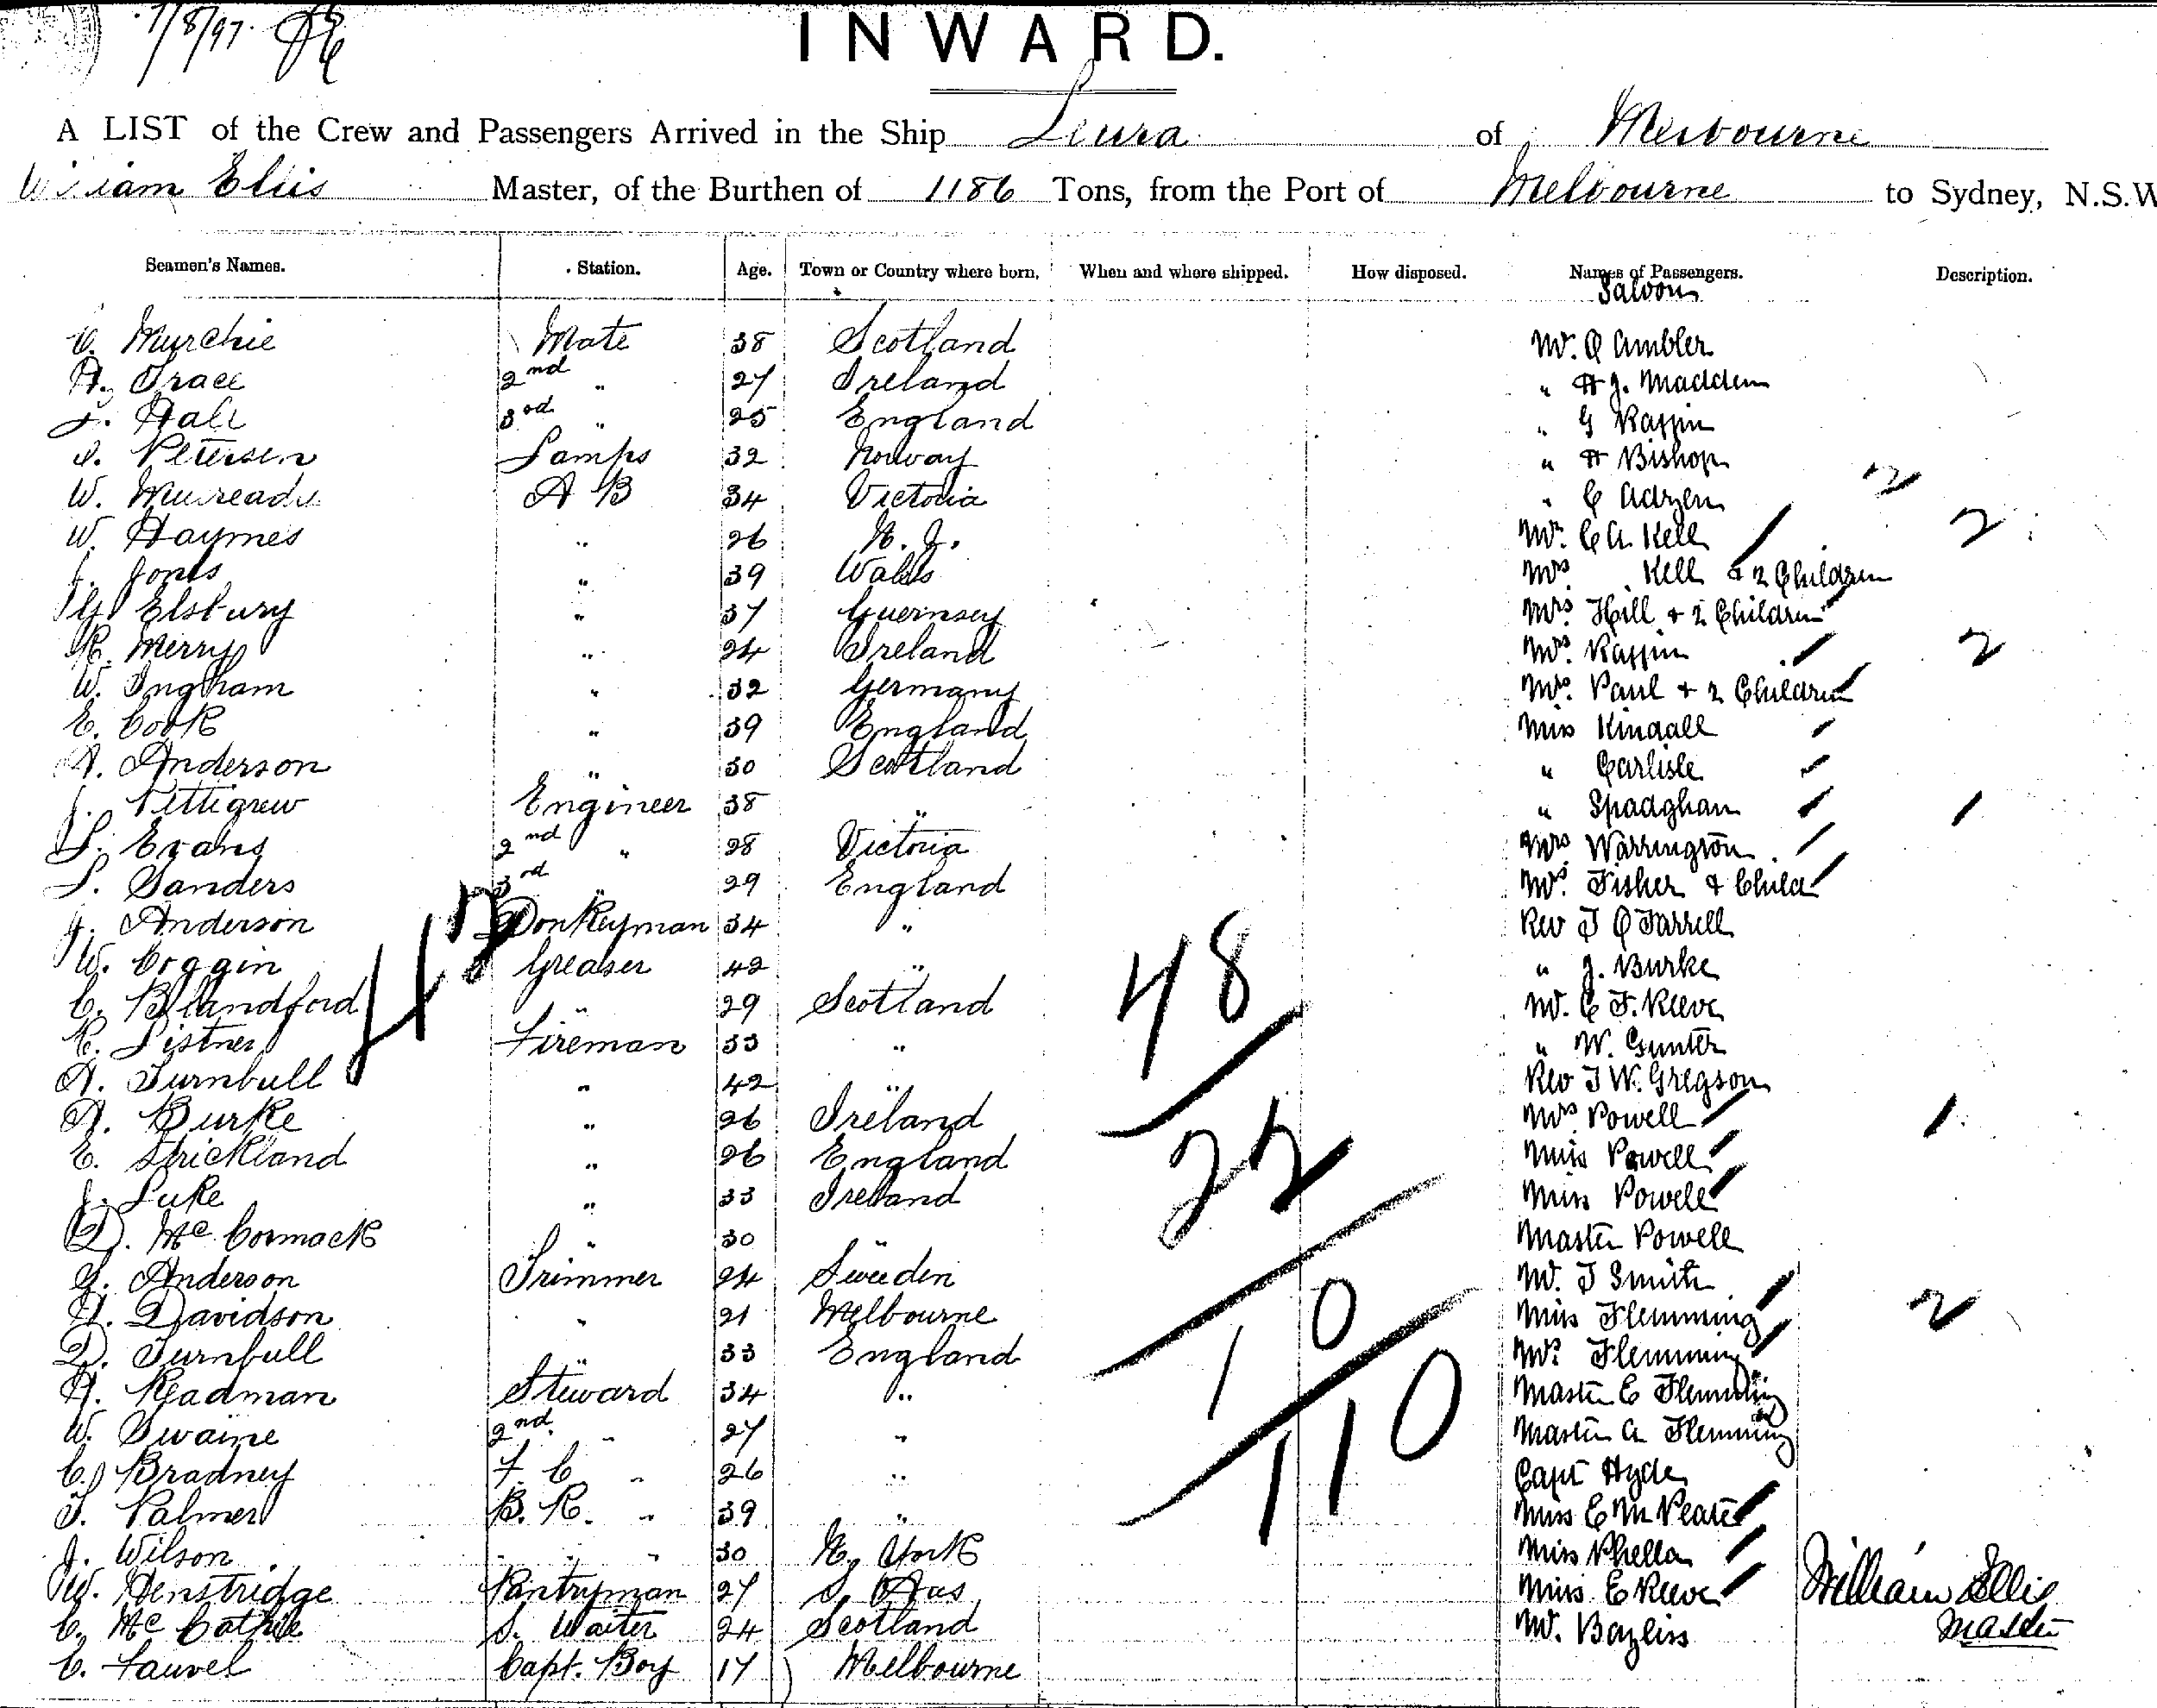 7/8/97.
INWARD.
A LIST of the Crew and Passengers Arrived in the Ship Leura of Melbourne
William Ellis Master, of the Burthen of 1186 Tons, from the Port of Melbourne to Sydney, N.S.W
Seamen's Names. Station. Age. Town or Country where born. When and where shipped. How disposed. Names of Passengers. Description.
Saloon
C. Murchie Mate 38 Scotland Mr. Q Ambler
A. Grace 2nd " 27 Ireland " H J. Madden
Hall 3rd " 25 England " G Rappin
Petersen Lamps 32 Norway " H Bishop 2
W. A B 34 Victoria " C Adzen
W. Haymes " 26 N. Z. Mr. C A. Kell 2
J. Jones " 39 Wales Mrs Kell & 2 Children
G Elsbury " 37 Guernsey Mrs. Hill & 2 Children
R. Merry " 24 Ireland Mrs. Rappin 2
W. Ingham " 32 Germany Mrs. Paul + 2 Children
E. Cook " 39 England Miss Kindall
A. Anderson " 30 Scotland " Carlisle
J. Pettigrew Engineer 38 " " Spadghan 1
L. Evans 2nd " 28 Victoria Mrs Warrington
L. Sanders 3rd " 29 England Mrs. Fisher & Child
J. Anderson Donkeyman 34 " Rev T O'Farrell
W. Coggin Greaser 42 " " J. Burke
C. Blandford " 29 Scotland Mr. C F. Reeve
C. Listner Fireman 33 " " W. Gunter
A. Turnbull " 42 " Rev T W. Gregson
A. Burke " 26 Ireland Mrs Powell 1
E. Strickland " 26 England Miss Powell
J. Luke " 33 Ireland Miss Powell
D. McCormack " 30 " Master Powell
G. Anderson Trimmer 24 Sweden Mr. T Smith
A. Davidson " 21 Melbourne Miss Flemming 2
D. Turnbull " 33 England Mrs Flemming
A. Readman Steward 34 " Master C Flemming
W. Swaine 2nd " 27 " Master A Flemming
C. Bradney F. C. " 26 " Capt Hyde
T. Palmer B. R. " 39 " Miss C M Peate
J. Wilson " " " 30 N. York Miss Phellan
W. Henstridge Pantryman 27 S. Aus Miss E Reeve William Ellis
C. McCathie S. Waiter 24 Scotland Mr. Bayliss Master
C. Fauvel Capt. Boy 17 Melbourne
48
22
10
110